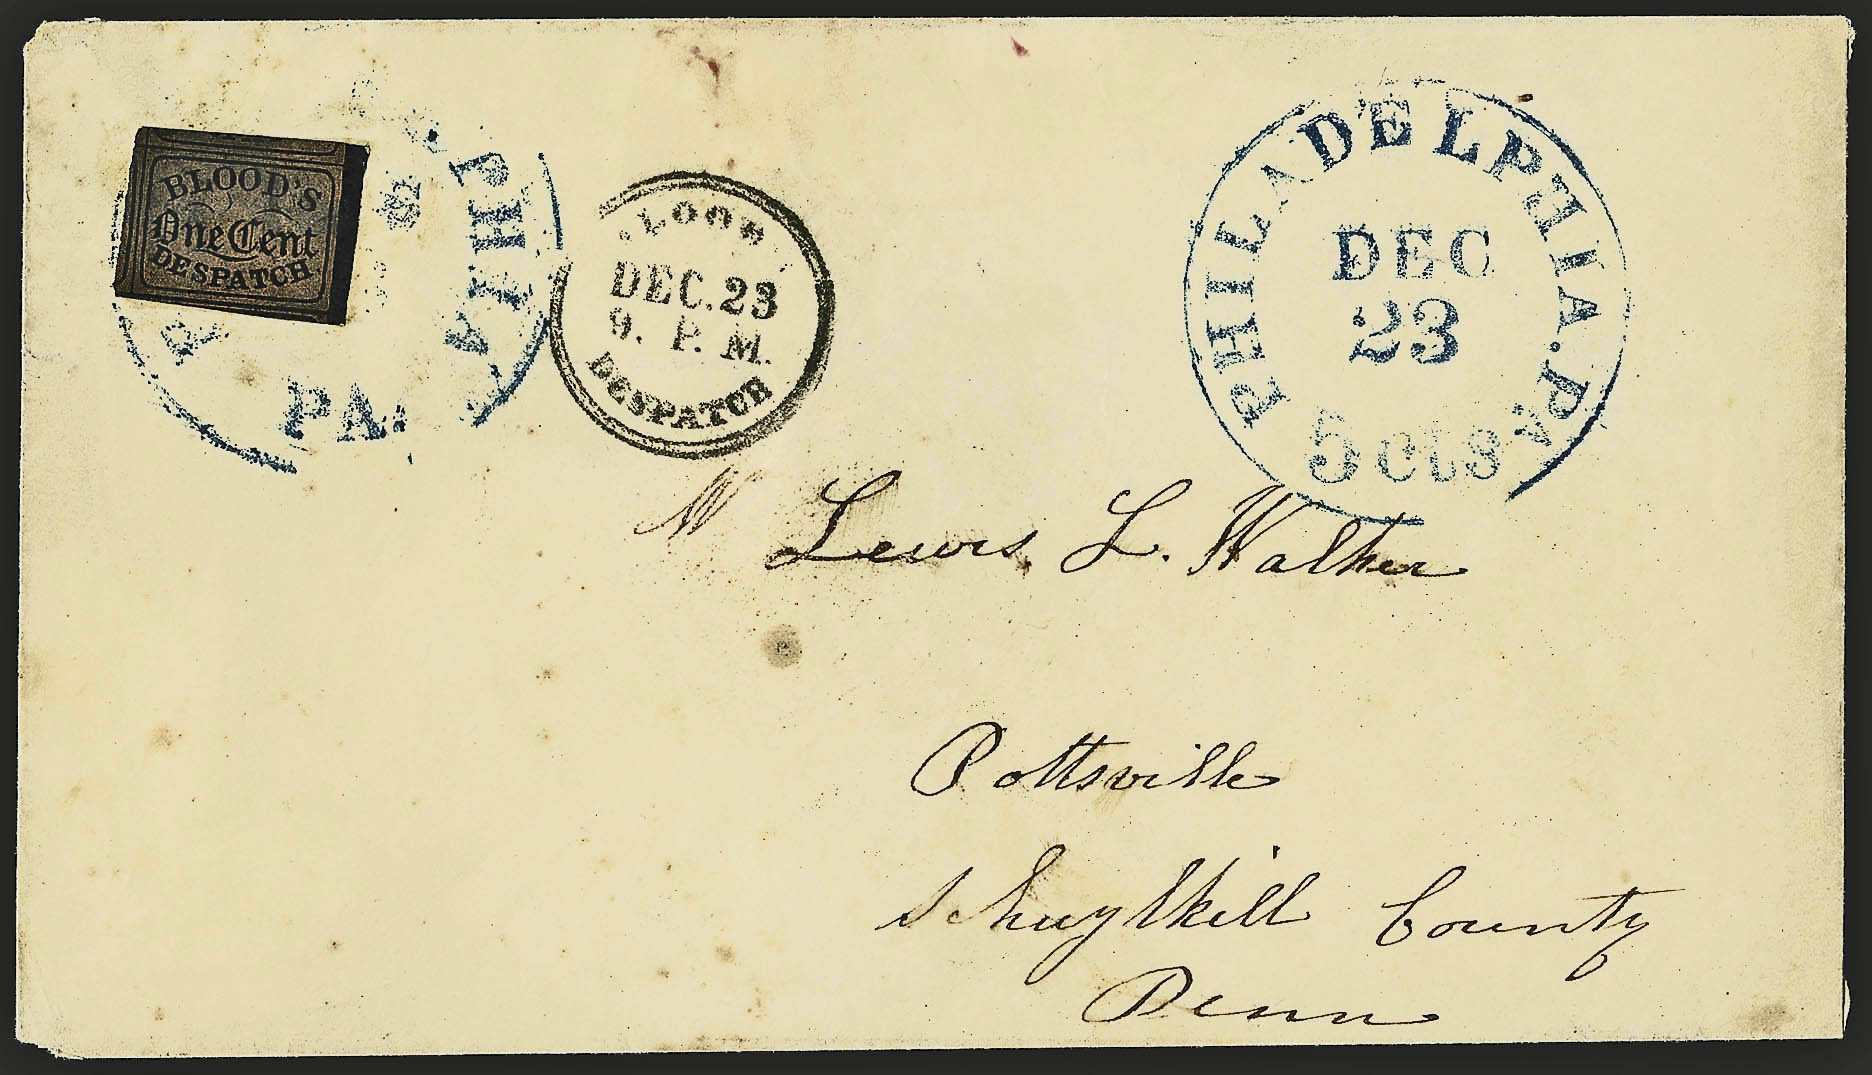 BLOOD'S
One Cent
DESPATCH
PHILA
PA.
DEC. 23
9. P. M.
DESPATCH
PHILADELPHIA. Pa
DEC
23
5 cts
M Lewis L. Walker
Pottsville
Schuylkill County
Penn